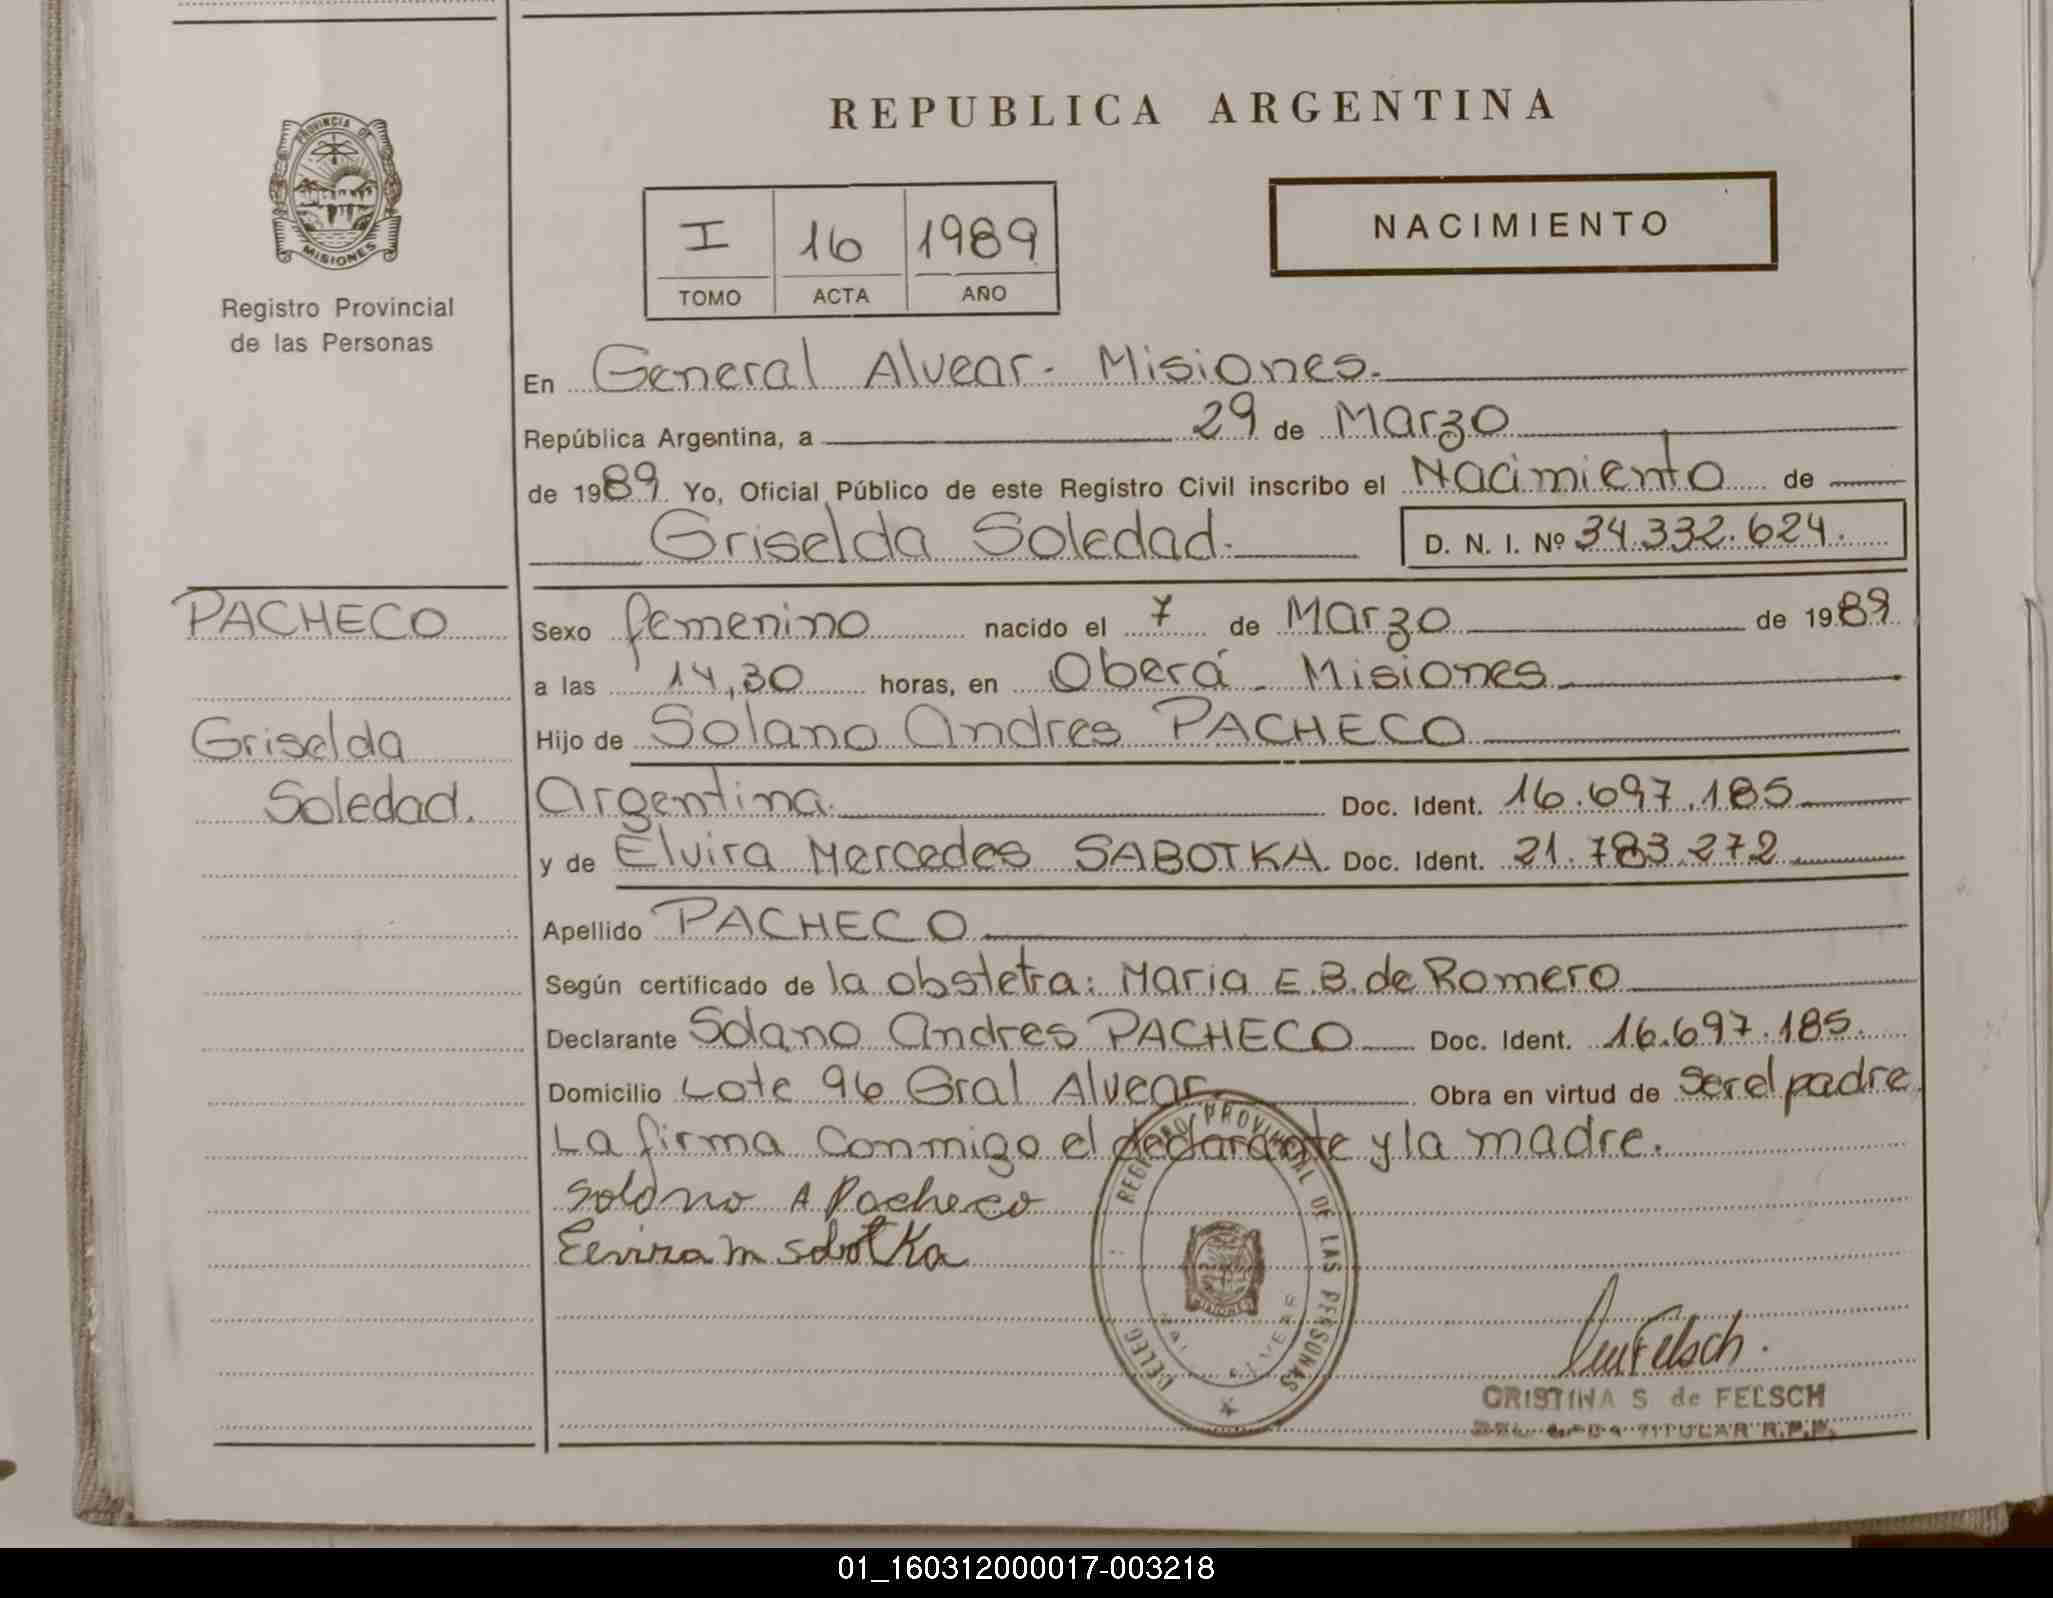 PROVINCIA DE
MISIONES
Registro Provincial
de las Personas
REPUBLICA ARGENTINA
I 16 1989
TOMO ACTA AÑO
NACIMIENTO
En General Alvear - Misiones.
República Argentina, a 29 de Marzo
de 1989 Yo, Oficial Público de este Registro Civil inscribo el Nacimiento de
Griselda Soledad. D. N. I. Nº 34.332.624.
PACHECO
Griselda
Soledad.
Sexo femenino nacido el 7 de Marzo de 1989
a las 14,30 horas, en Oberá - Misiones
Hijo de Solano Andres PACHECO
Argentina. Doc. Ident. 16.697.185
y de Elvira Mercedes SABOTKA. Doc. Ident. 21.783.272
Apellido PACHECO
Según certificado de la obstetra: Maria E.B. de Romero
Declarante Solano Andres PACHECO Doc. Ident. 16.697.185.
Domicilio Lote 96 Gral Alvear Obra en virtud de Ser el padre
La firma conmigo el declarante y la madre.
Solano A Pacheco
Elvira M Sabotka
REGISTRO PROVINCIAL DE LAS PERSONAS
DELEG.
MISIONES
Felsch.
CRISTINA S de FELSCH
TITULAR R.P.P.
01_160312000017-003218